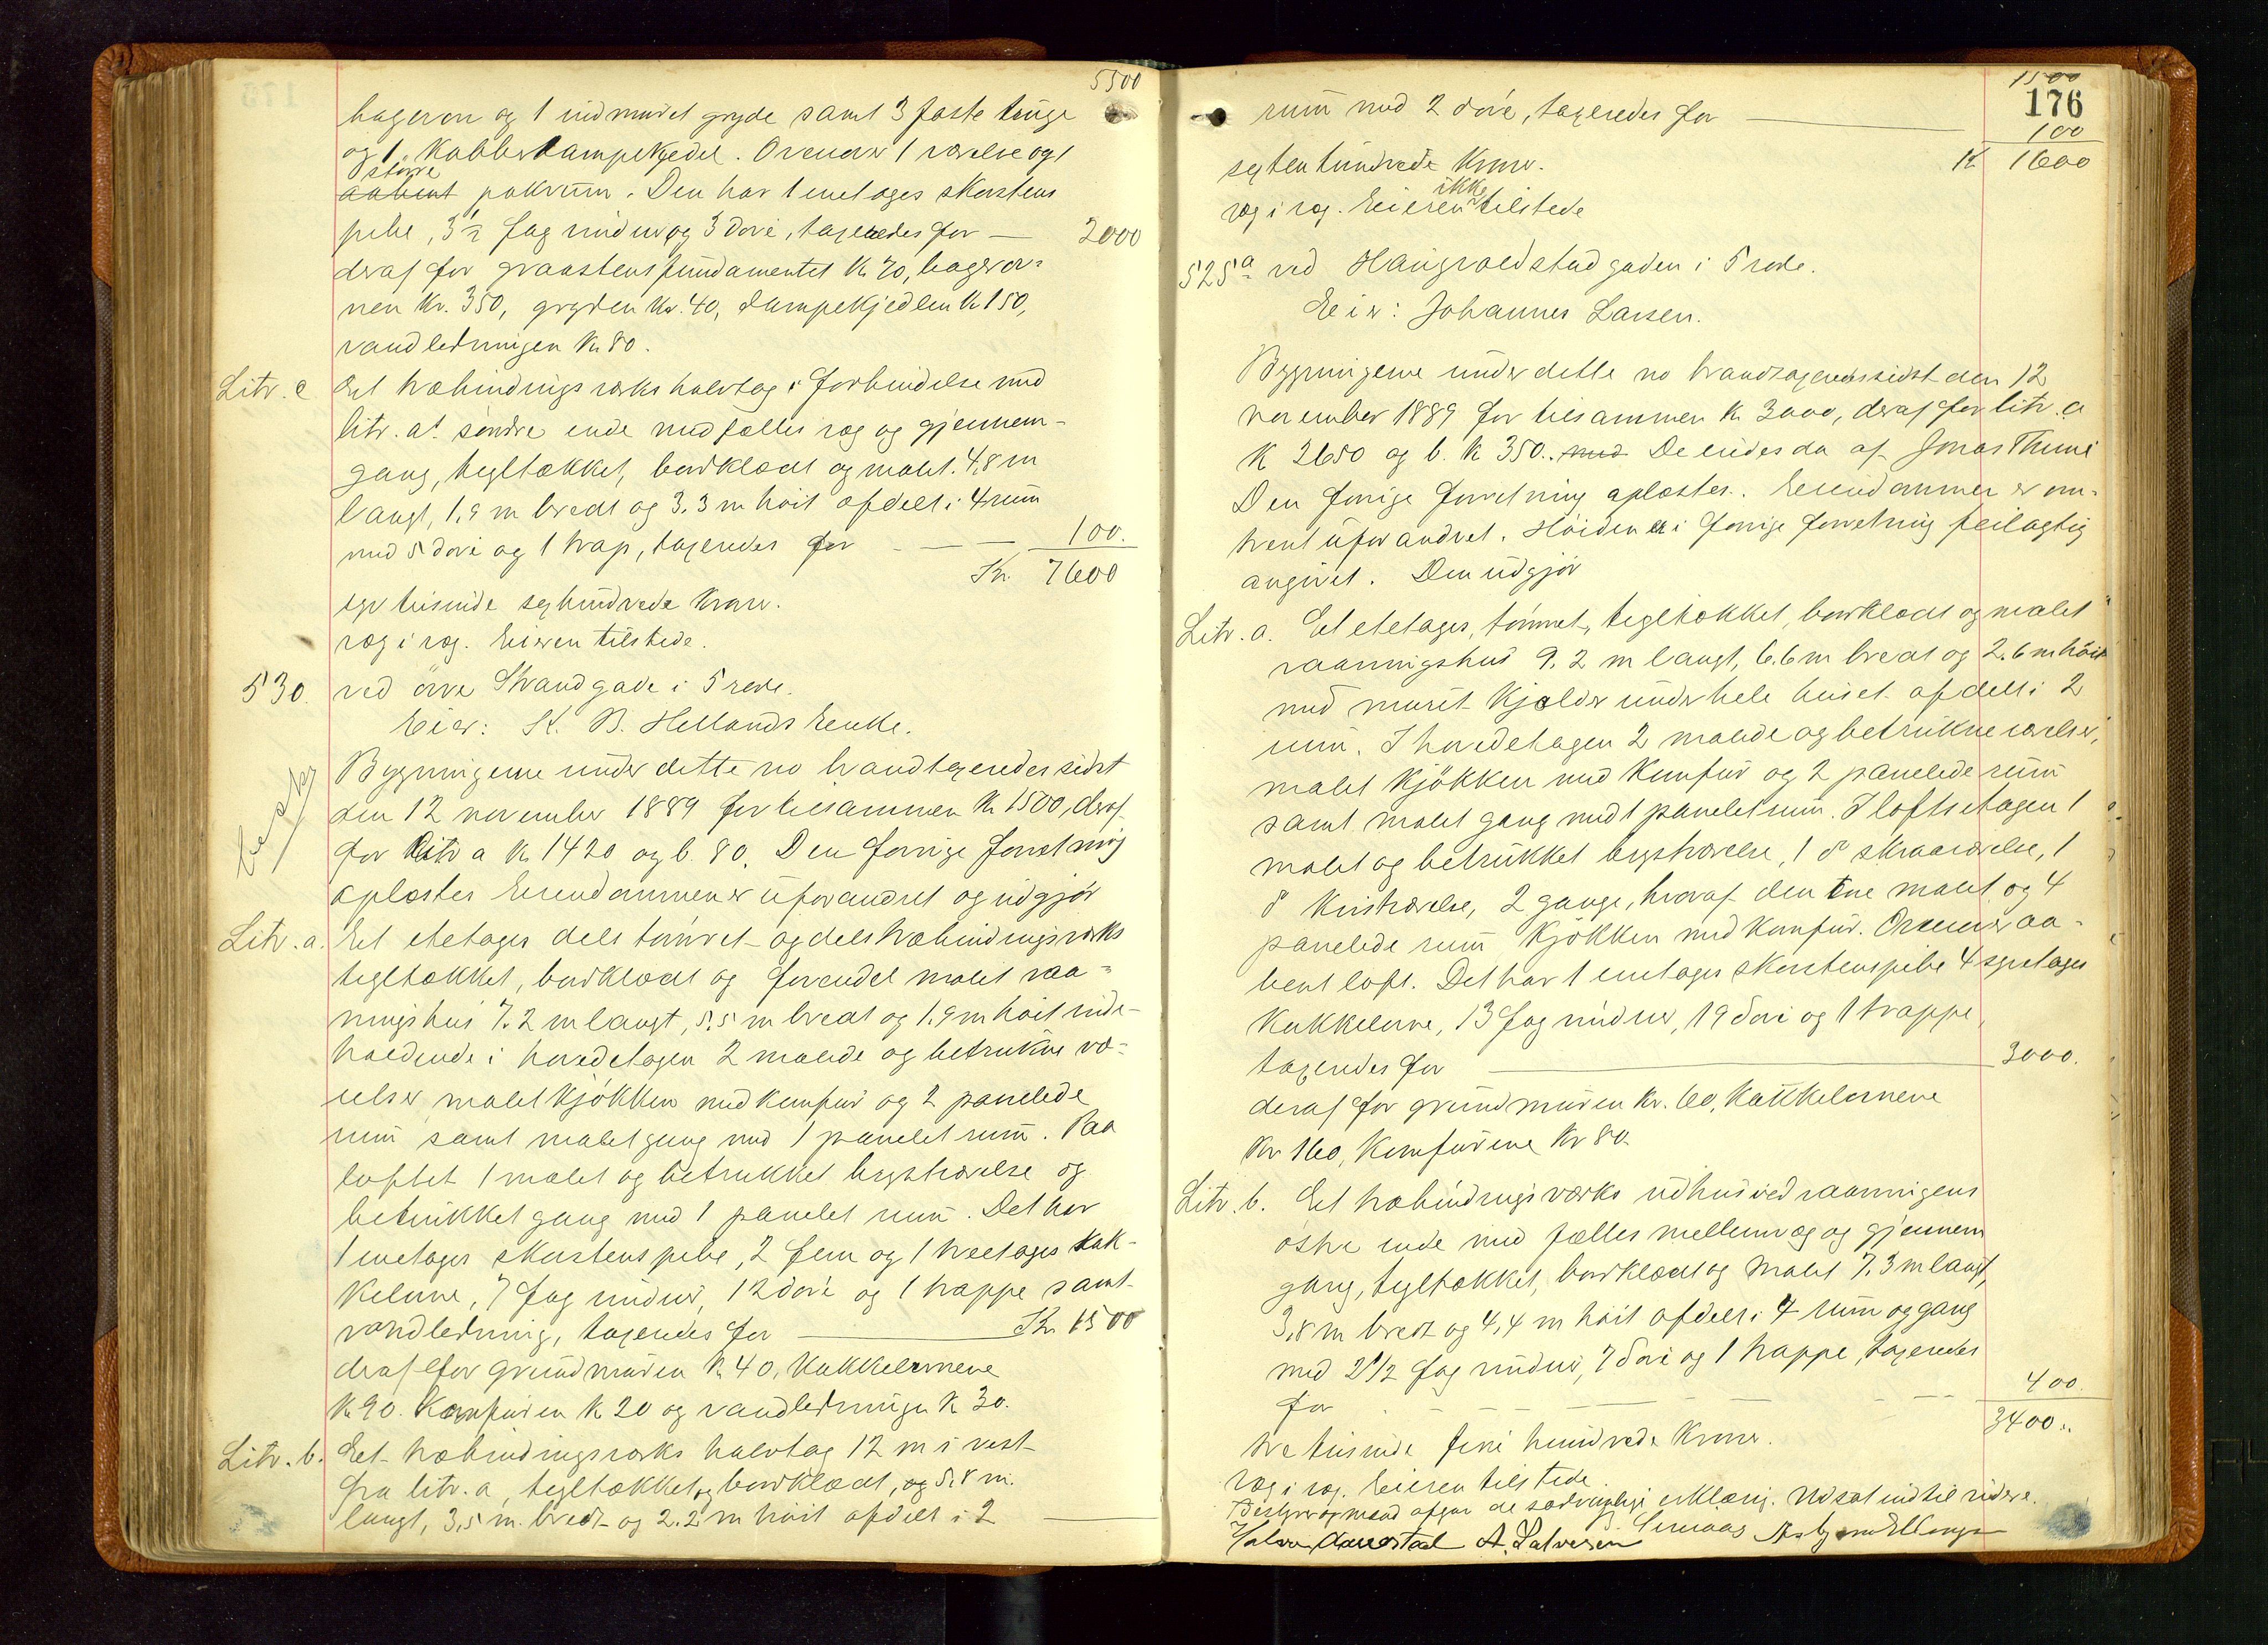 5500
bagerovn og 1 indmuret gryde samt 3 faste bænge
og 1 Kobberdampekjedel. Ovenover 1 værelse og 1
større
aabent pakrum. Den har 1 enetages skorstens
pibe, 3½ fag vinduer og 3 döre, taxeredes for — 2000
deraf for graastensfundamentet Kr 70, bagerov=
nen Kr. 350, gryden Kr. 40, dampekjedlen Kr 150,
vandledningen Kr 80.
Litr. c Et træbindingsværks halvtag i forbindelse med
litr. a's söndre ende med fælles væg og gjennem-
gang, tegltækket, bordklædt og malet. 4,8 m
langt, 1,9 m bredt og 3.3 m höit afdelt i 4 rum
med 5 döre og 1 trap, taxeredes for — 100.
Kr. 7600
syv tusinde sexhundrede Kroner.
væg i væg. Eieren tilstede.
530. ved övre Strandgade i 5 rode.
Eier: K. B. Hellands Enke.
Bygningerne under dette no brandtaxeredes sidst
den 12 november 1889 for tilsammen Kr 1500, deraf
for Litr a Kr 1420 og b. 80. Den forrige forretning
oplæstes Eiendommen er uforandret og udgjör
Litr. a. Et etetages dels tömret- og dels træbindingsværks
tegltækket, bordklædt og forendel malet vaa=
ningshus 7.2 m langt, 5,5 m bredt og 1.9 m höit inde-
holdende i hovedetagen 2 malede og betrukne væ=
relser malet kjökken med komfur og 2 panelede
rum samt malet gang med 1 panelet rum. Paa
loftet 1 malet og betrukket brystværelse og
betrukket gang med 1 panelet rum. Det har
1 enetages skorstenspibe, 2 fem og 1 treetages kak-
kelovne, 7 fag vinduer, 12 döre og 1 trappe samt
vandledning, taxeredes for — Kr. 1500
deraf for grundmuren Kr 40, Kakkelovnene
Kr 90. Komfuren Kr 20 og vandledningen Kr 30.
Litr. b. Et træbindingsværks halvtag 12 m i vest-
fra litr. a, tegltækket, og bordklædt, og 5,8 m.
langt, 3,5 m. bredt og 2.2 m höit afdelt i 2
1500
176
rum med 2 döre, taxeredes for — 100
Kr 1600
sexten hundrede Kroner.
ikke
væg i væg. Eieren tilstede
525a ved Haugvoldstadgaden i 5 rode.
Eier: Johannes Larsen.
Bygningerne under dette no brandtaxeredes sidst den 12
november 1889 for tilsammen Kr 3000, deraf for litr. a
Kr 2650 og b. Kr 350. med De eiedes da af Jonas Thime
Den forrige forretning oplæstes. Eiendommen er om-
trent uforandret. Höiden er i forrige forretning feilagtig
angivet. Den udgjör
Litr. a. Et etetages, tömret, tegltækket, bordklædt og malet
vaaningshus 9.2 m langt, 6.6 m bredt og 2.6 m höit
med muret Kjælder under hele huset afdelt i 2
rum. I hovedetagen 2 malede og betrukne værelser,
malet kjökken med Komfur og 2 panelede rum
samt malet gang med 1 panelet rum. I loftsetagen 1
malet og betrukket brystværelse, 1 do skraaværelse, 1
do Kvistværelse, 2 gange, hvoraf den ene malet og 4
panelede rum kjökken med komfur. Ovenover aa-
bent loft. Det har 1 enetages skorstenspibe 4 syvetages
Kakkelovne, 13 fag vinduer, 19 döre og 1 trappe,
taxeredes for — 3000.
deraf for grundmuren Kr. 60, Kakkelovnene
Kr 160, Komfurene Kr 80.
Litr. b. Et træbindingsværks udhus ved vaaningens
östre ende med fælles mellemvæg og gjennem
gang, tegltækket, bordklædt og malet 7,3 m langt,
3,8 m bredt og 4,4 m höit afdelt i 4 rum og gang
med 2½ fag vinduer, 7 döre og 1 trappe, taxeredes
for — 400.
3400.
tre tusinde fire hundrede Kroner.
væg i væg. Eieren tilstede.
Bestyrer og mænd afgav de sædvanlige erklæring. Udsat indtil videre.
A. Salvesen